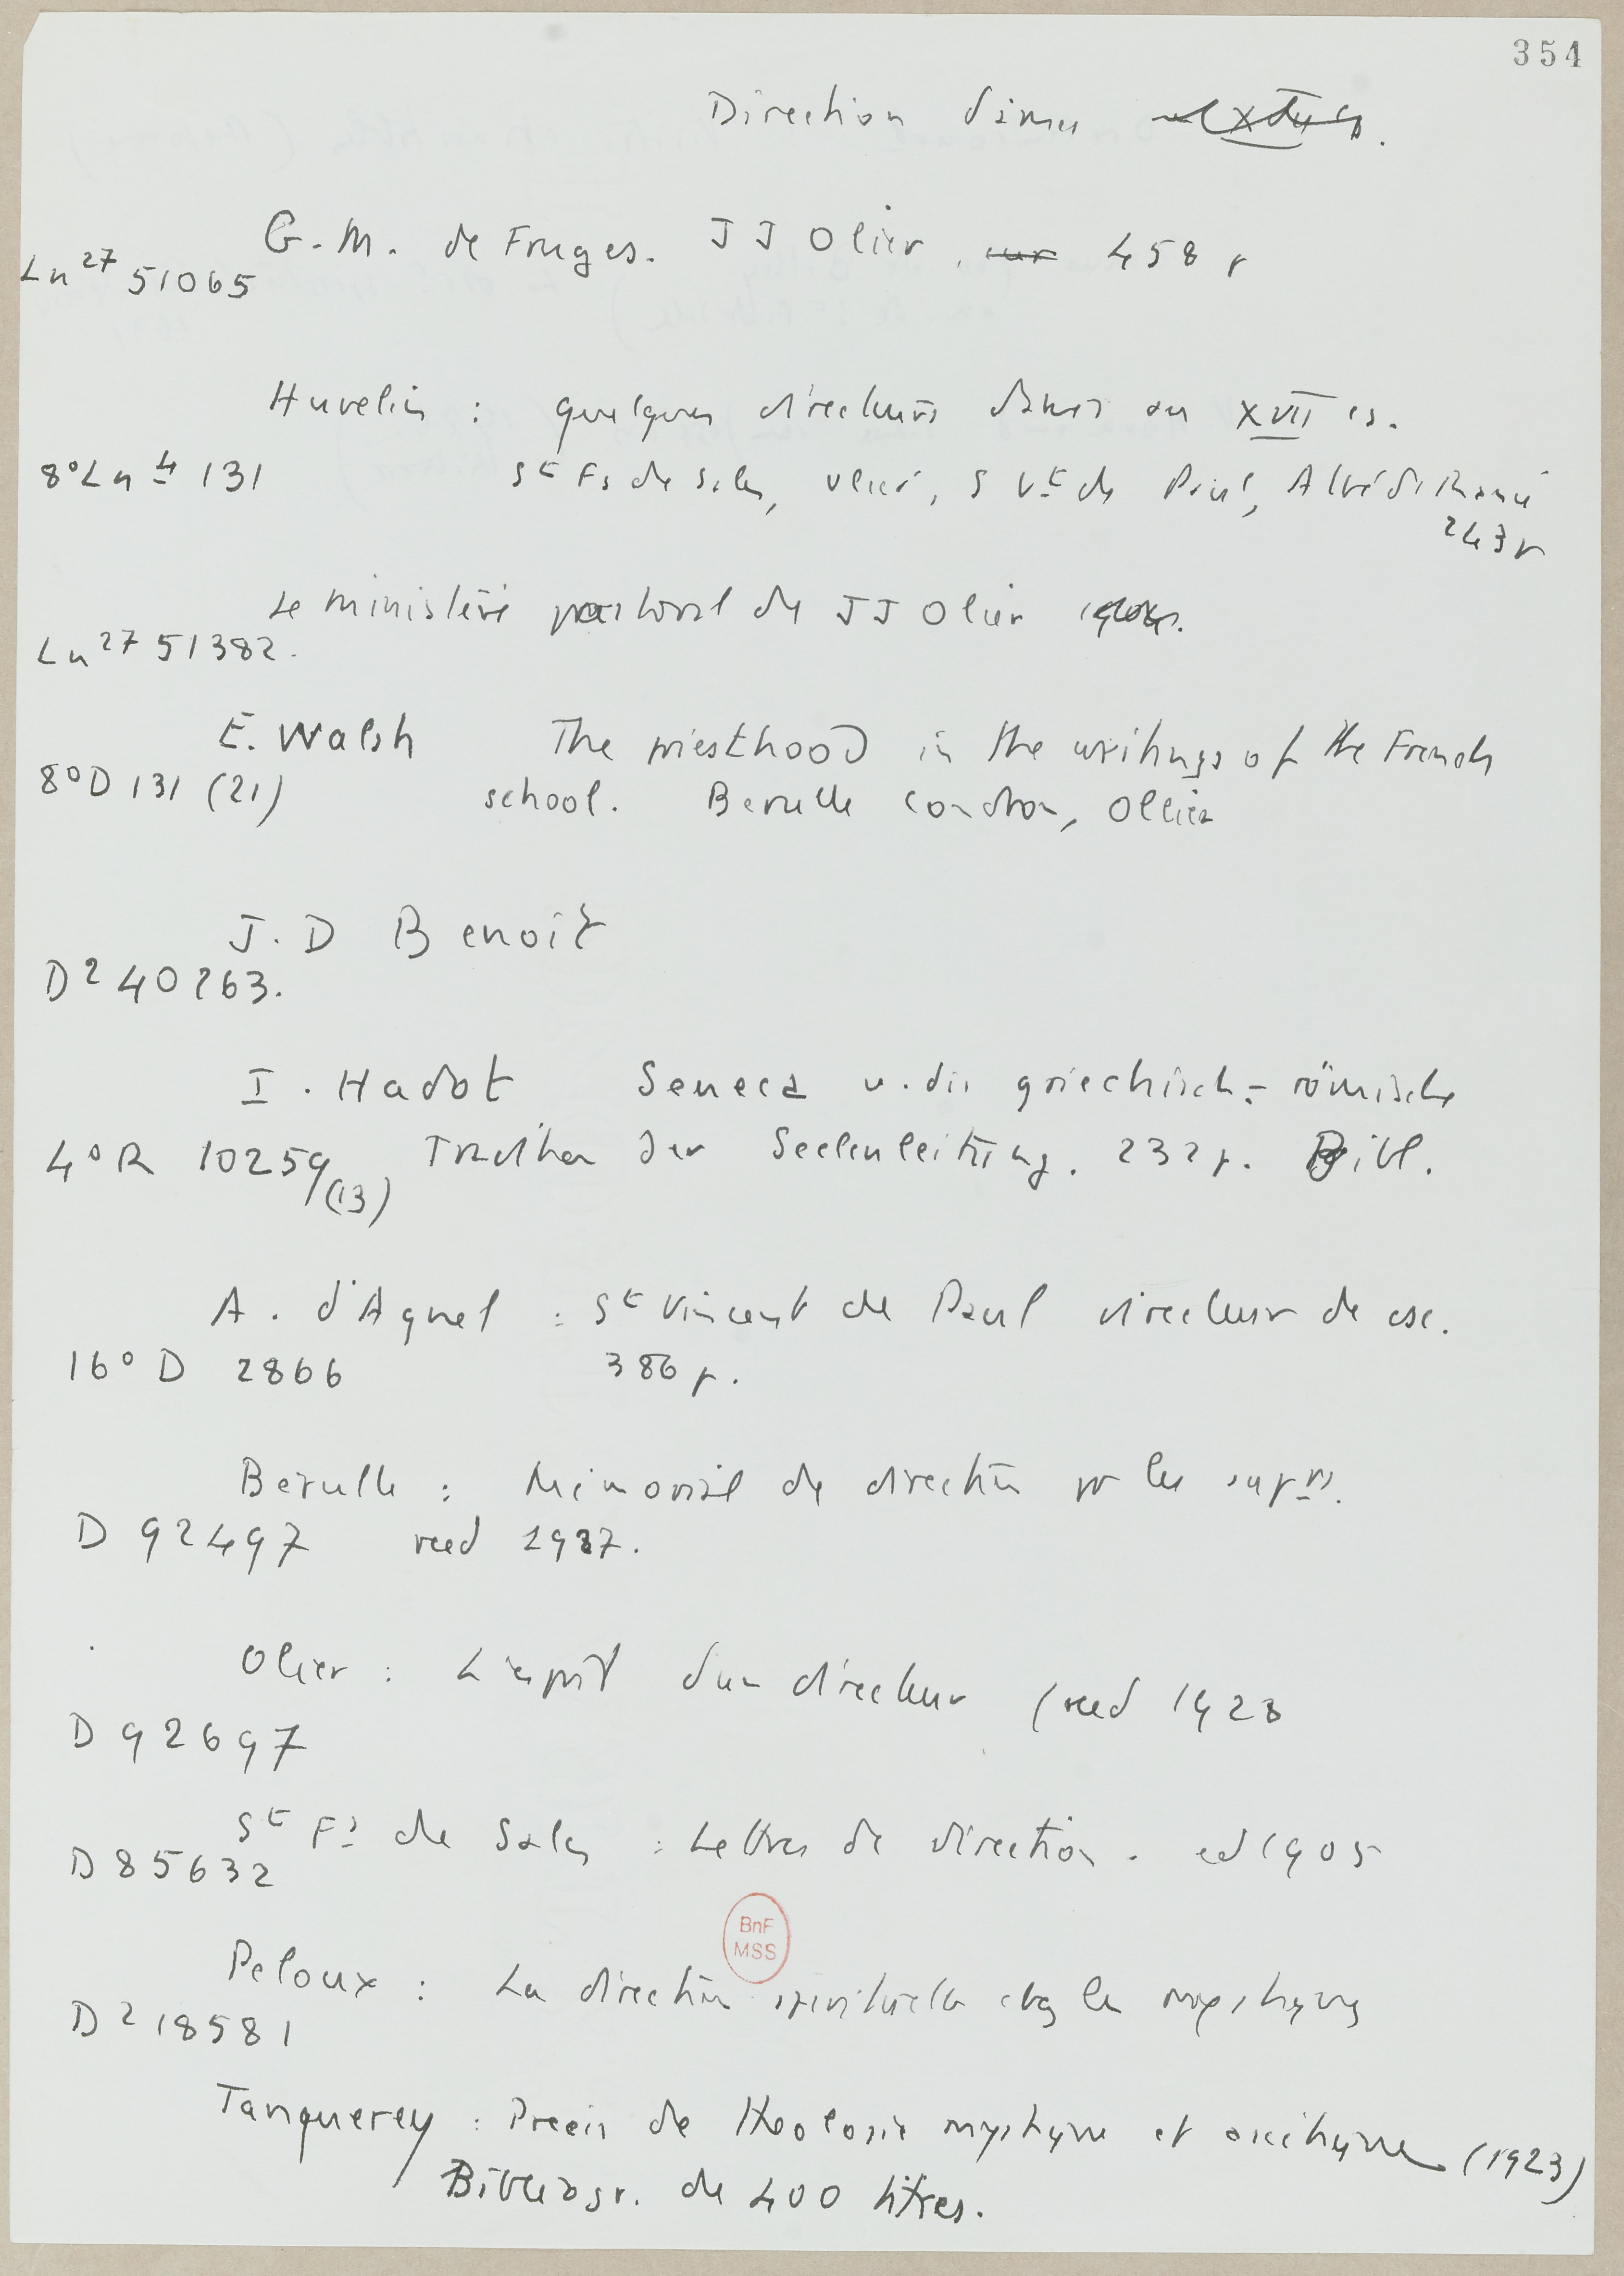 354
Direction d'âmes
G. M. de Fruges. J J Olier, 458 p
Ln 27 51065
Huvelin : quelques directeurs d'âmes au XVII es.
8° Ln 4 131 St Fs de Sales, Olier, S Vt de Paul, A de Rancé
243 p
Le ministère pastoral de J J Olier
Ln 27 51382.
E. Walsh The priesthood in the writings of the French
8° D 131 (21) school. Berulle Condren, Ollier
J. D Benoit
D 2 40263.
I. Hadot Seneca u. die griechisch-römische
4° R 10259 (13) Tradition der Seelenleitung. 232 p. Bibl.
A. d'Agnel : St Vincent de Paul directeur de csc.
16° D 2866 386 p.
Berulle : Mémorial de direction pr les suprs.
D 92497 reed 1927.
Olier : L'esprit d'un directeur (reed 1928
D 92697
St Fs de Sales : Lettres de direction. ed 1905
D 85632
BnF
MSS
Peloux : La direction spirituelle chez les mystiques
D 2 18581
Tanquerey : Precis de theologie mystique et ascetique (1923)
Bibliogr. de 400 titres.